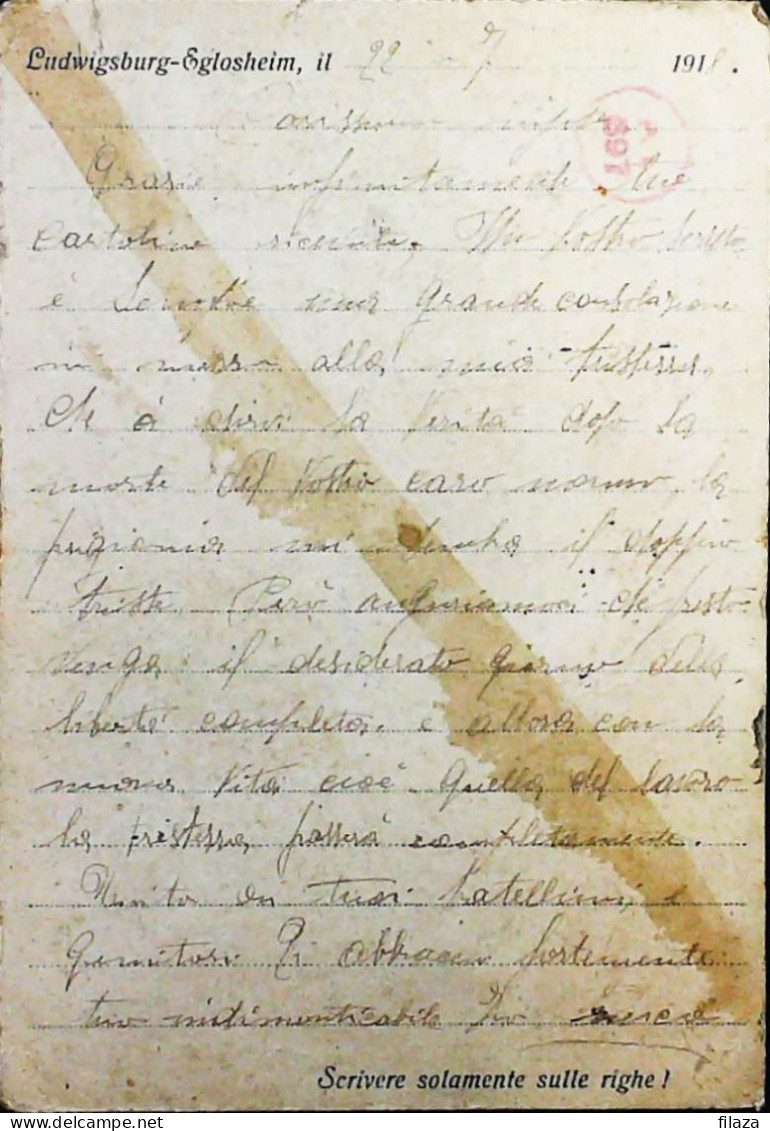 Ludwigsburg-Eglosheim, il 22 - 7 1918.
Carissimo nipote
169
Grazie infinitamente tue
cartoline ricevute. Un Vostro scritto
è sempre una grande consolazione
in mezzo alla mia tristezza.
Che a dirvi la verità dopo la
morte del Vostro caro nonno la
prigionia mi sembra il doppio
triste. Però auguriamoci che presto
venga il desiderato giorno della
libertà completa. e allora con la
nuova vita cioè quella del lavoro
la tristezza passerà completamente.
Unito ai tuoi fratellini e
genitori Ti abbraccio fortemente
tuo indimenticabile Zio
Scrivere solamente sulle righe!